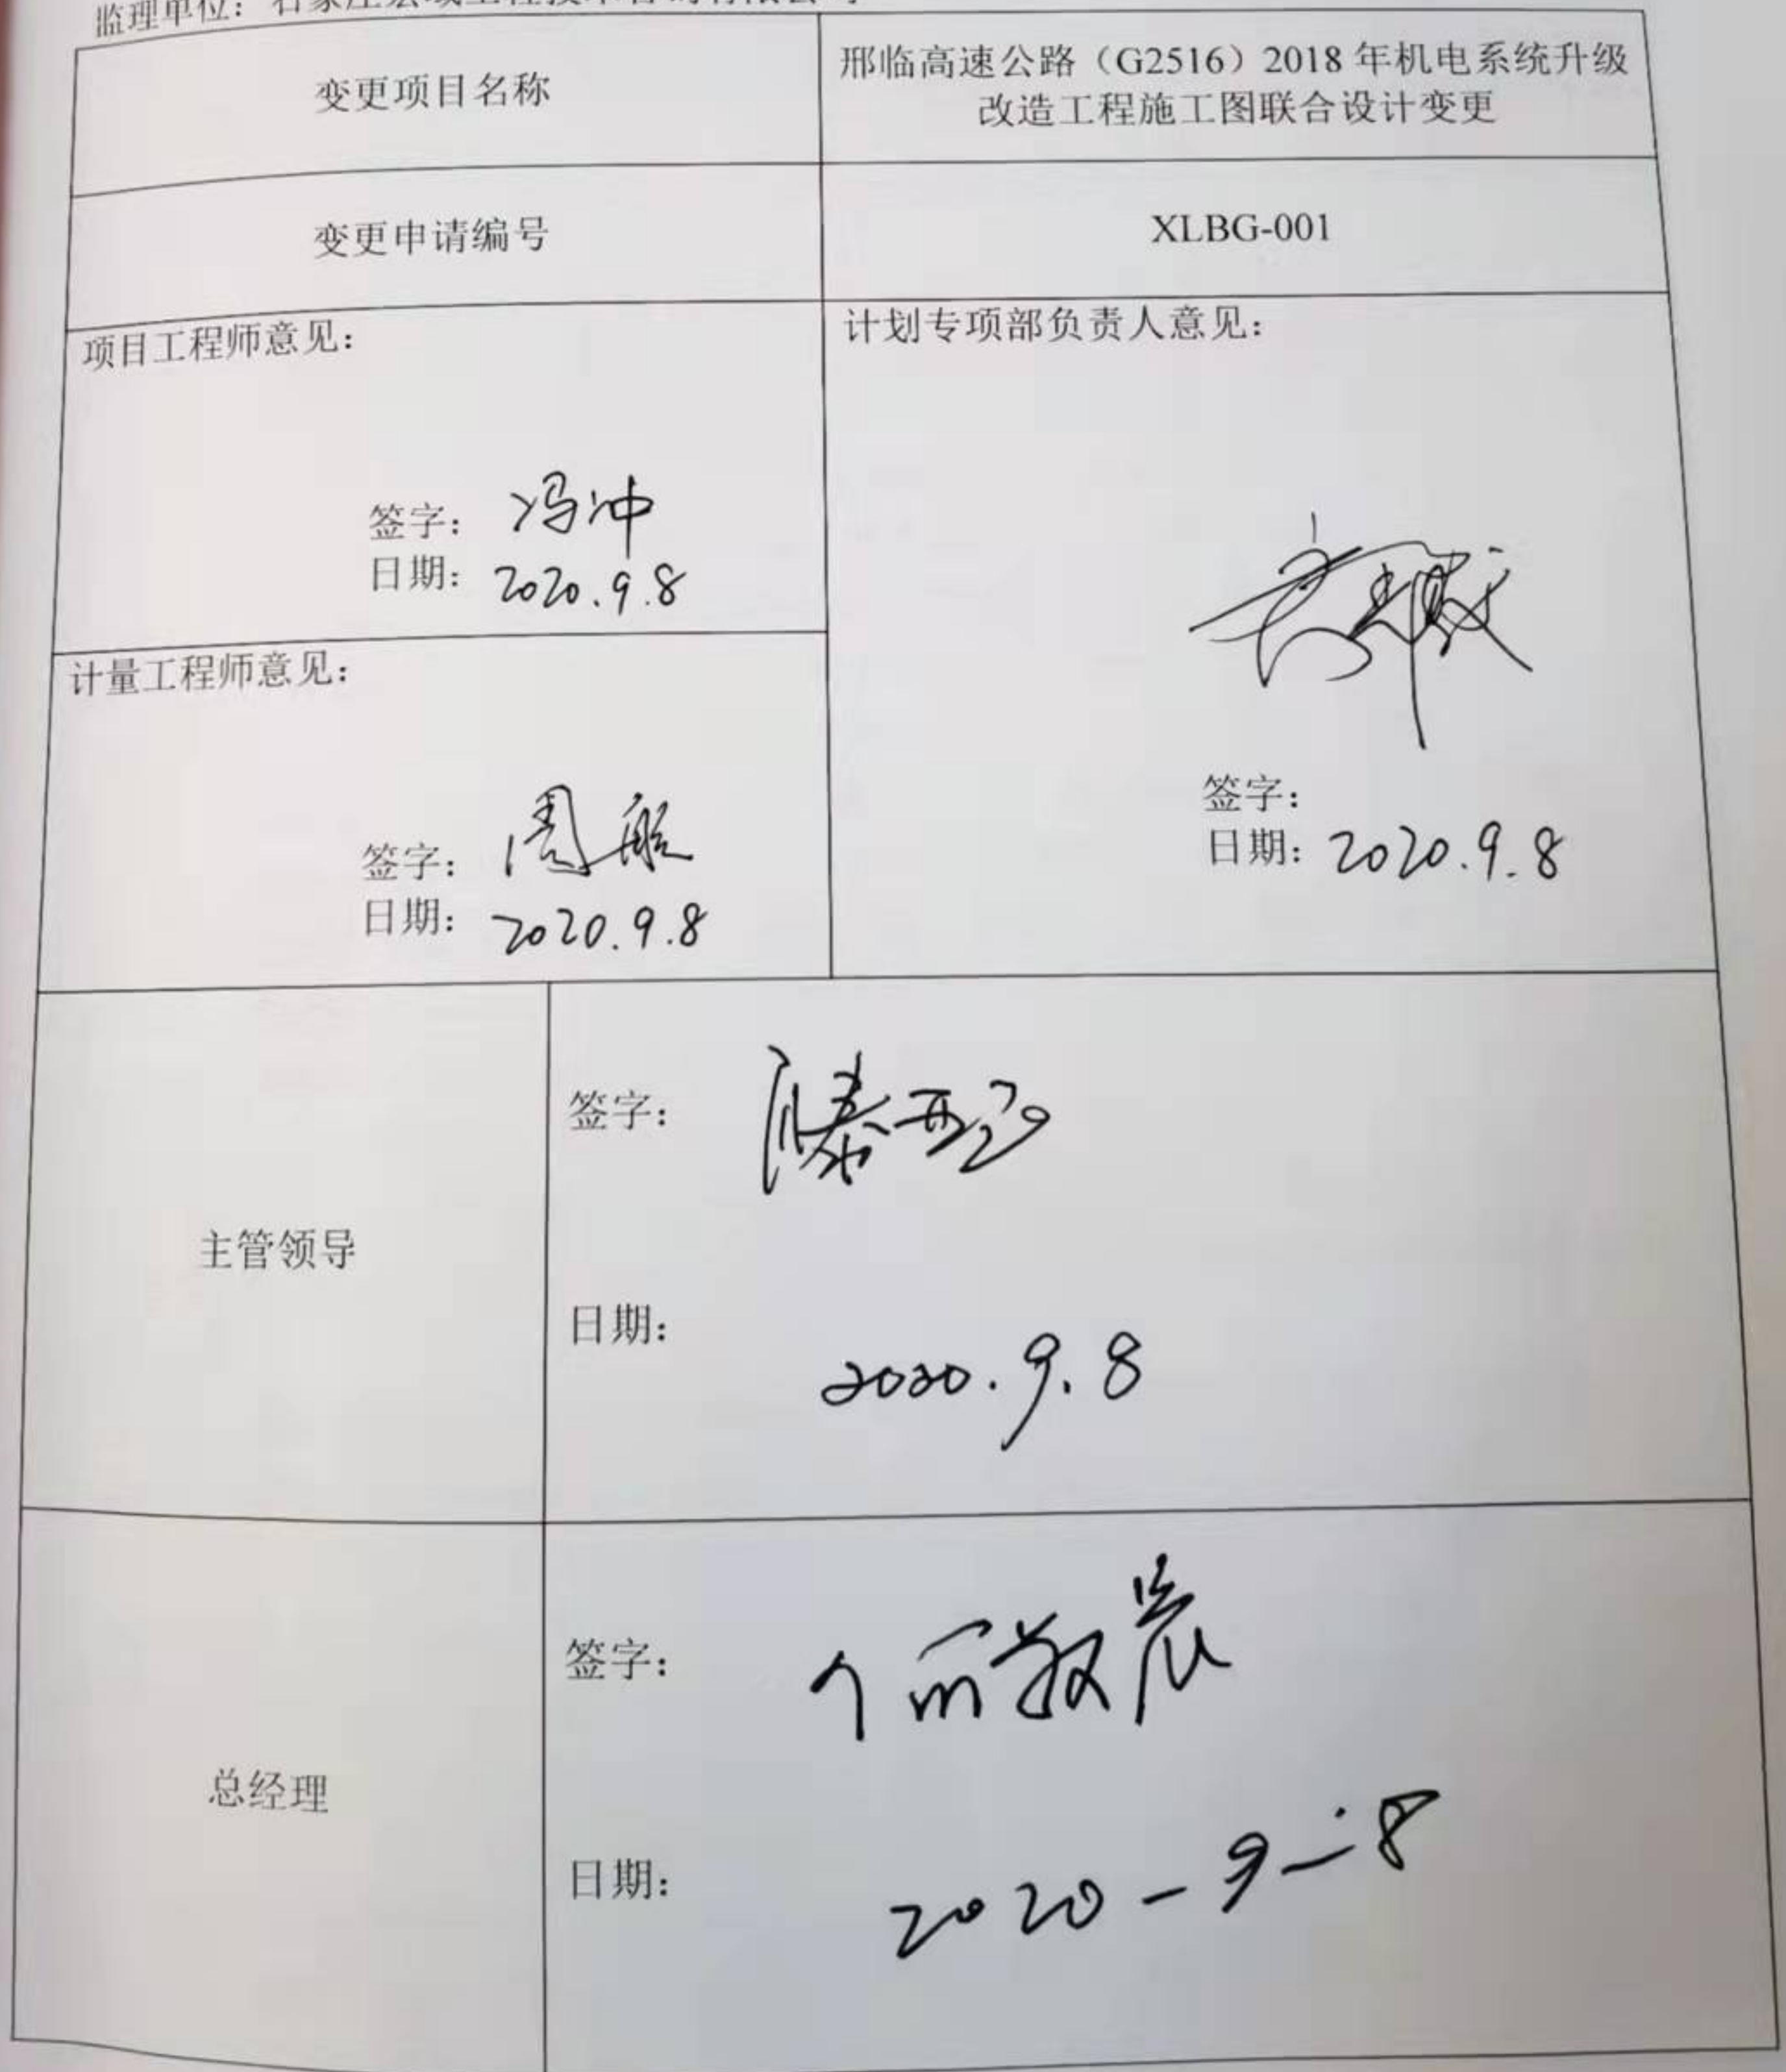 监理单位：石家庄宏域工程技术咨询有限公司
变更项目名称
邢临高速公路（G2516）2018年机电系统升级
改造工程施工图联合设计变更
变更申请编号
XLBG-001
项目工程师意见：
签字：冯冲
日期：2020.9.8
计量工程师意见：
签字：周航
日期：2020.9.8
计划专项部负责人意见：
签字：
日期：2020.9.8
主管领导
签字：滕亚
日期：
2020.9.8
总经理
签字：敬晨
日期：
2020-9-8